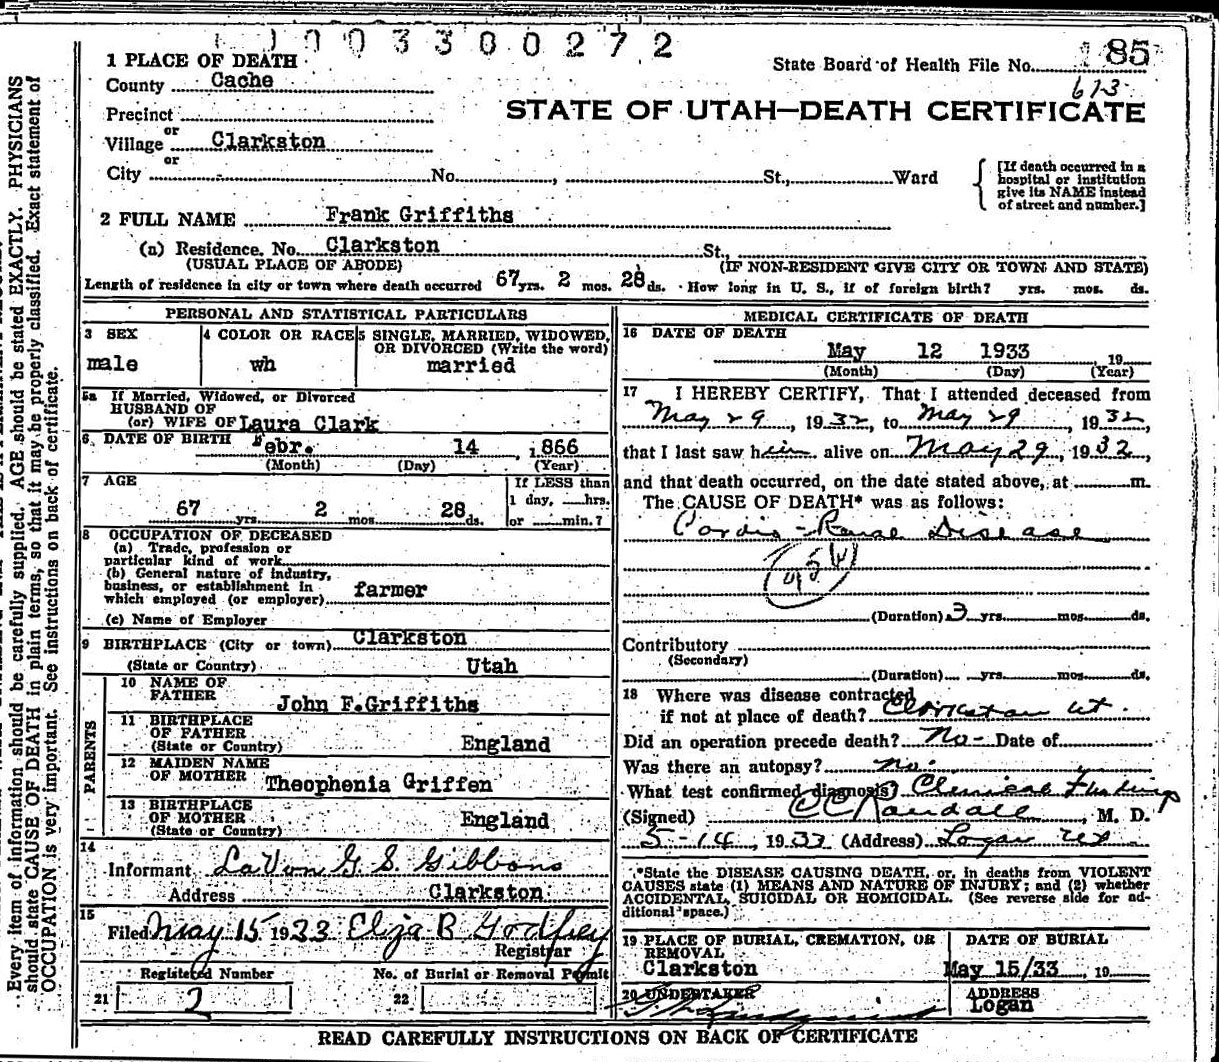 1 0 0 3 3 0 0 2 7 2
1 PLACE OF DEATH
State Board of Health File No. 85
County Cache
613
Precinct
STATE OF UTAH—DEATH CERTIFICATE
or
Village Clarkston
or
City No. , St., Ward
[If death occurred in a
hospital or institution
give its NAME instead
of street and number.]
2 FULL NAME Frank Griffiths
(a) Residence. No. Clarkston St.,
(USUAL PLACE OF ABODE) (IF NON-RESIDENT GIVE CITY OR TOWN AND STATE)
Length of residence in city or town where death occurred 67 yrs. 2 mos. 28 ds. How long in U. S., if of foreign birth? yrs. mos. ds.
PERSONAL AND STATISTICAL PARTICULARS
3 SEX
male
4 COLOR OR RACE
wh
5 SINGLE, MARRIED, WIDOWED,
OR DIVORCED (Write the word)
married
5a If Married, Widowed, or Divorced
HUSBAND OF
(or) WIFE OF Laura Clark
6 DATE OF BIRTH Febr. 14 , 1866
(Month) (Day) (Year)
7 AGE
67 yrs. 2 mos. 28 ds.
If LESS than
1 day, hrs.
or min.?
8 OCCUPATION OF DECEASED
(a) Trade, profession or
particular kind of work
(b) General nature of industry,
business, or establishment in
which employed (or employer) farmer
(c) Name of Employer
9 BIRTHPLACE (City or town) Clarkston
(State or Country) Utah
PARENTS
10 NAME OF
FATHER John F.Griffiths
11 BIRTHPLACE
OF FATHER
(State or Country) England
12 MAIDEN NAME
OF MOTHER Theophenia Griffen
13 BIRTHPLACE
OF MOTHER
(State or Country) England
14
Informant LaVon G. S. Gibbons
Address Clarkston
15
Filed May 15 1933 Eliza B Godfrey
Registrar
Registered Number
21 2
No. of Burial or Removal Permit
22
MEDICAL CERTIFICATE OF DEATH
16 DATE OF DEATH
May 12 1933 , 19
(Month) (Day) (Year)
17 I HEREBY CERTIFY, That I attended deceased from
May 29, 1932, to May 29, 1932,
that I last saw him alive on May 29, 1932,
and that death occurred, on the date stated above, at m.
The CAUSE OF DEATH* was as follows:
Cardio-Renal Disease
95
(Duration) 3 yrs. mos. ds.
Contributory
(Secondary)
(Duration) yrs. mos. ds.
18 Where was disease contracted
if not at place of death? Clarkston Ut.
Did an operation precede death? No- Date of
Was there an autopsy? no.
What test confirmed diagnosis? Clinical Findings
(Signed) C C Randall, M. D.
5-14, 1933 (Address) Logan Ut
*State the DISEASE CAUSING DEATH, or, in deaths from VIOLENT
CAUSES state (1) MEANS AND NATURE OF INJURY; and (2) whether
ACCIDENTAL, SUICIDAL OR HOMICIDAL. (See reverse side for ad-
ditional space.)
19 PLACE OF BURIAL, CREMATION, OR
REMOVAL
Clarkston
DATE OF BURIAL
May 15/33 , 19
20 UNDERTAKER
ADDRESS
Logan
READ CAREFULLY INSTRUCTIONS ON BACK OF CERTIFICATE
Every item of information should be carefully supplied. AGE should be stated EXACTLY. PHYSICIANS
should state CAUSE OF DEATH in plain terms, so that it may be properly classified. Exact statement of
OCCUPATION is very important. See instructions on back of certificate.